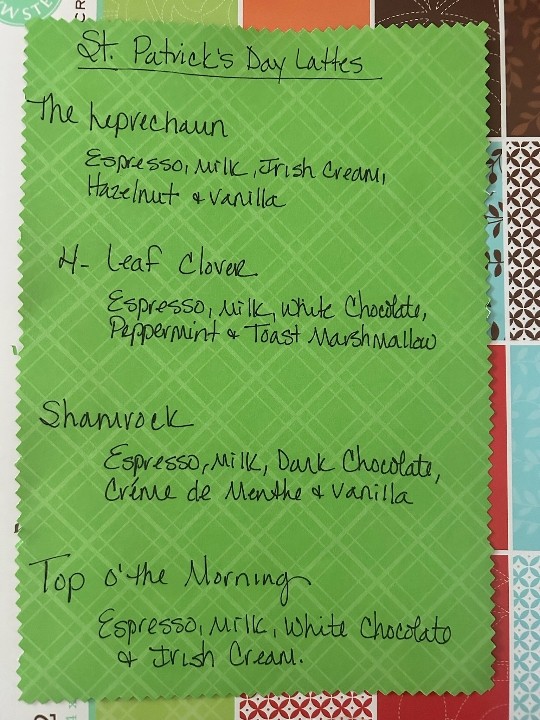 St. Patrick's Day Lattes
The Leprechaun
Espresso, Milk, Irish Cream,
Hazelnut & Vanilla
4- Leaf Clover
Espresso, Milk, White Chocolate,
Peppermint & Toast Marshmallow
Shamrock
Espresso, Milk, Dark Chocolate,
Créme de Menthe & Vanilla
Top o' the Morning
Espresso, Milk, White Chocolate
& Irish Cream.